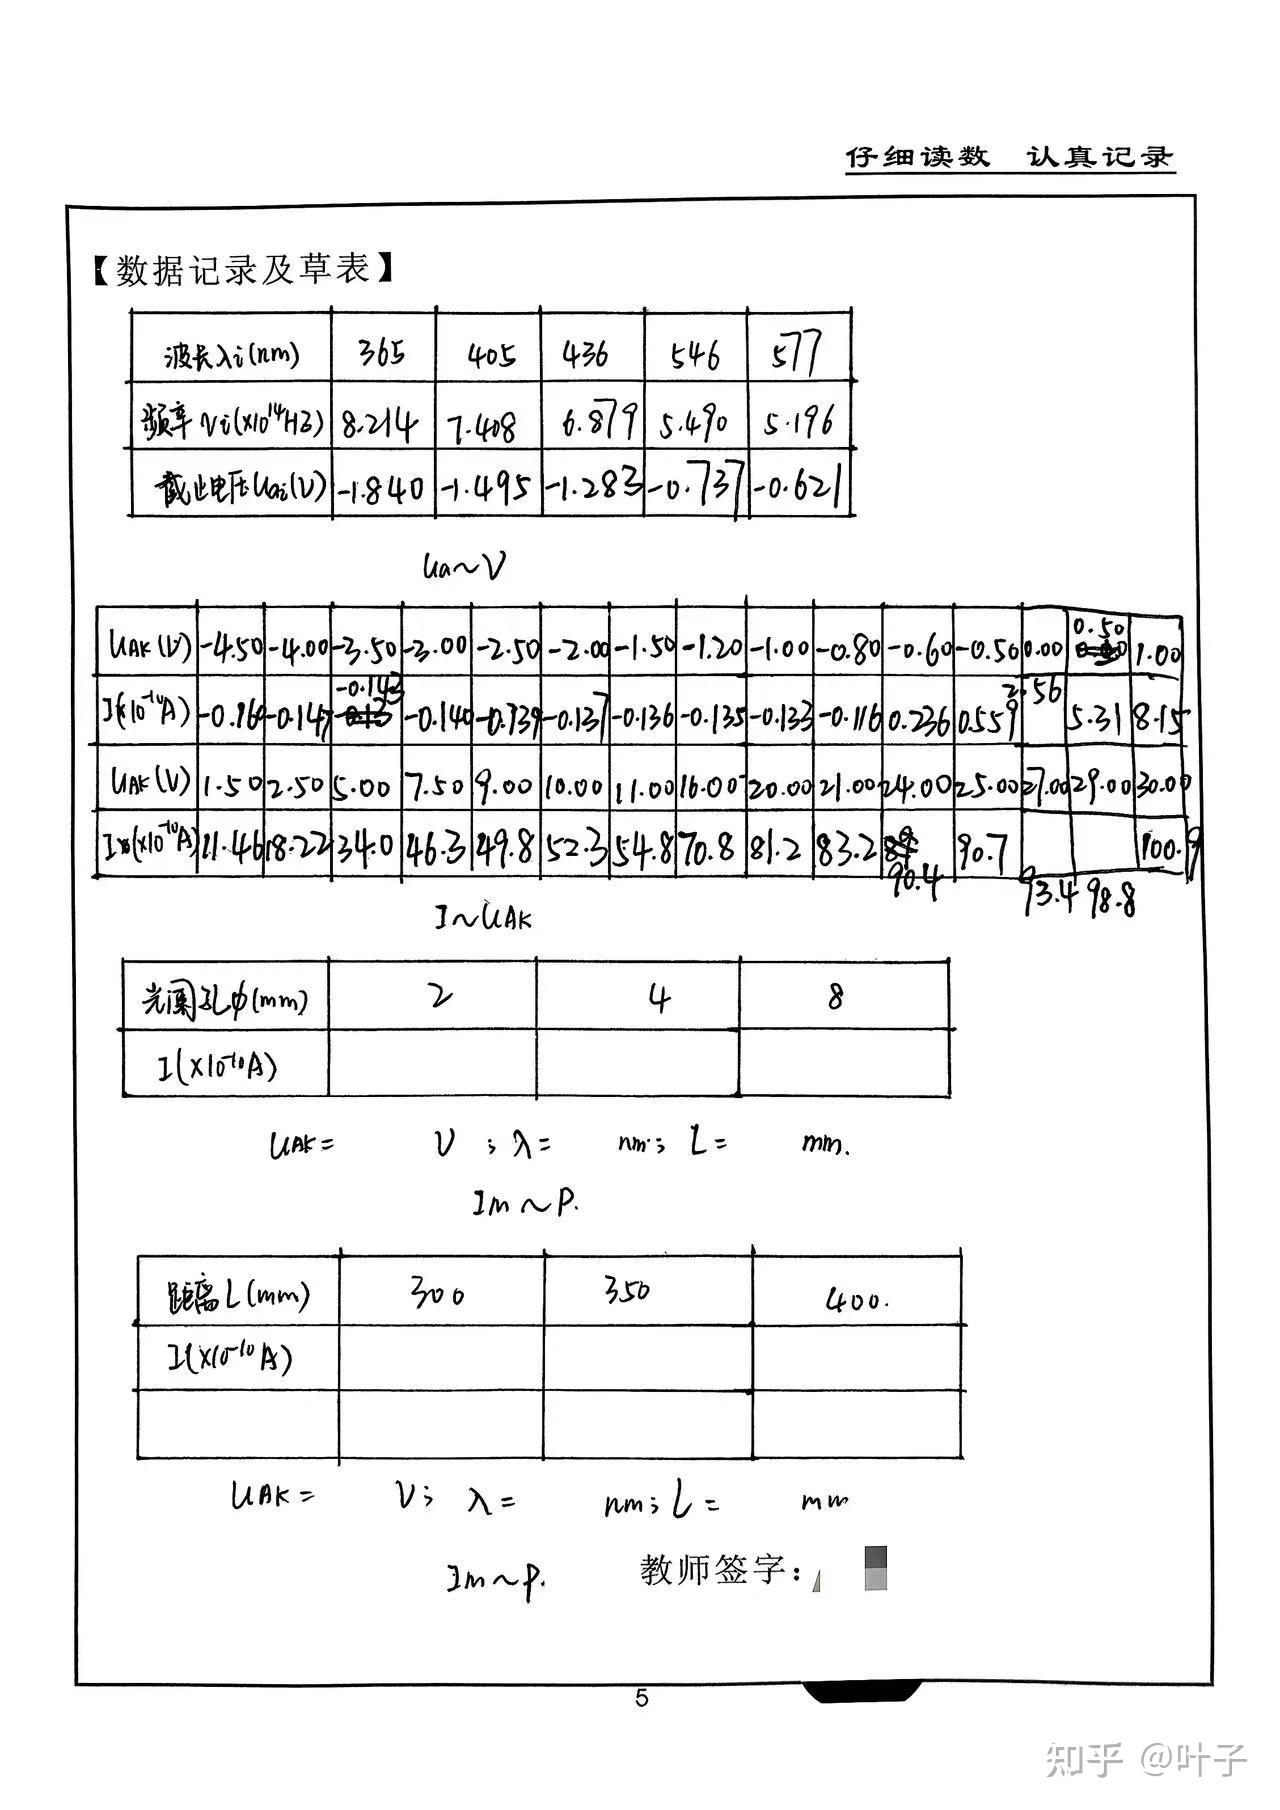 仔细读数 认真记录
【数据记录及草表】
波长λi(nm) 365 405 436 546 577
频率νi(×10¹⁴Hz) 8.214 7.408 6.879 5.490 5.196
截止电压Uai(V) -1.840 -1.495 -1.283 -0.737 -0.621
Ua~ν
UAK(V) -4.50 -4.00 -3.50 -3.00 -2.50 -2.00 -1.50 -1.20 -1.00 -0.80 -0.60 -0.50 0.00 0.50 1.00
I(×10⁻¹⁰A) -0.160 -0.147 -0.143 -0.140 -0.139 -0.137 -0.136 -0.135 -0.133 -0.116 0.236 0.559 2.56 5.31 8.15
UAK(V) 1.50 2.50 5.00 7.50 9.00 10.00 11.00 16.00 20.00 21.00 24.00 25.00 27.00 29.00 30.00
I(×10⁻¹⁰A) 11.46 18.22 34.0 46.3 49.8 52.3 54.8 70.8 81.2 83.2 90.4 90.7 93.4 98.8 100.9
I~UAK
光阑孔φ(mm) 2 4 8
I(×10⁻¹⁰A)
UAK= V ; λ= nm; L= mm.
Im~P.
距离L(mm) 300 350 400.
I(×10⁻¹⁰A)
UAK= V; λ= nm; L= mm
Im~P.
教师签字:
5
知乎 @叶子